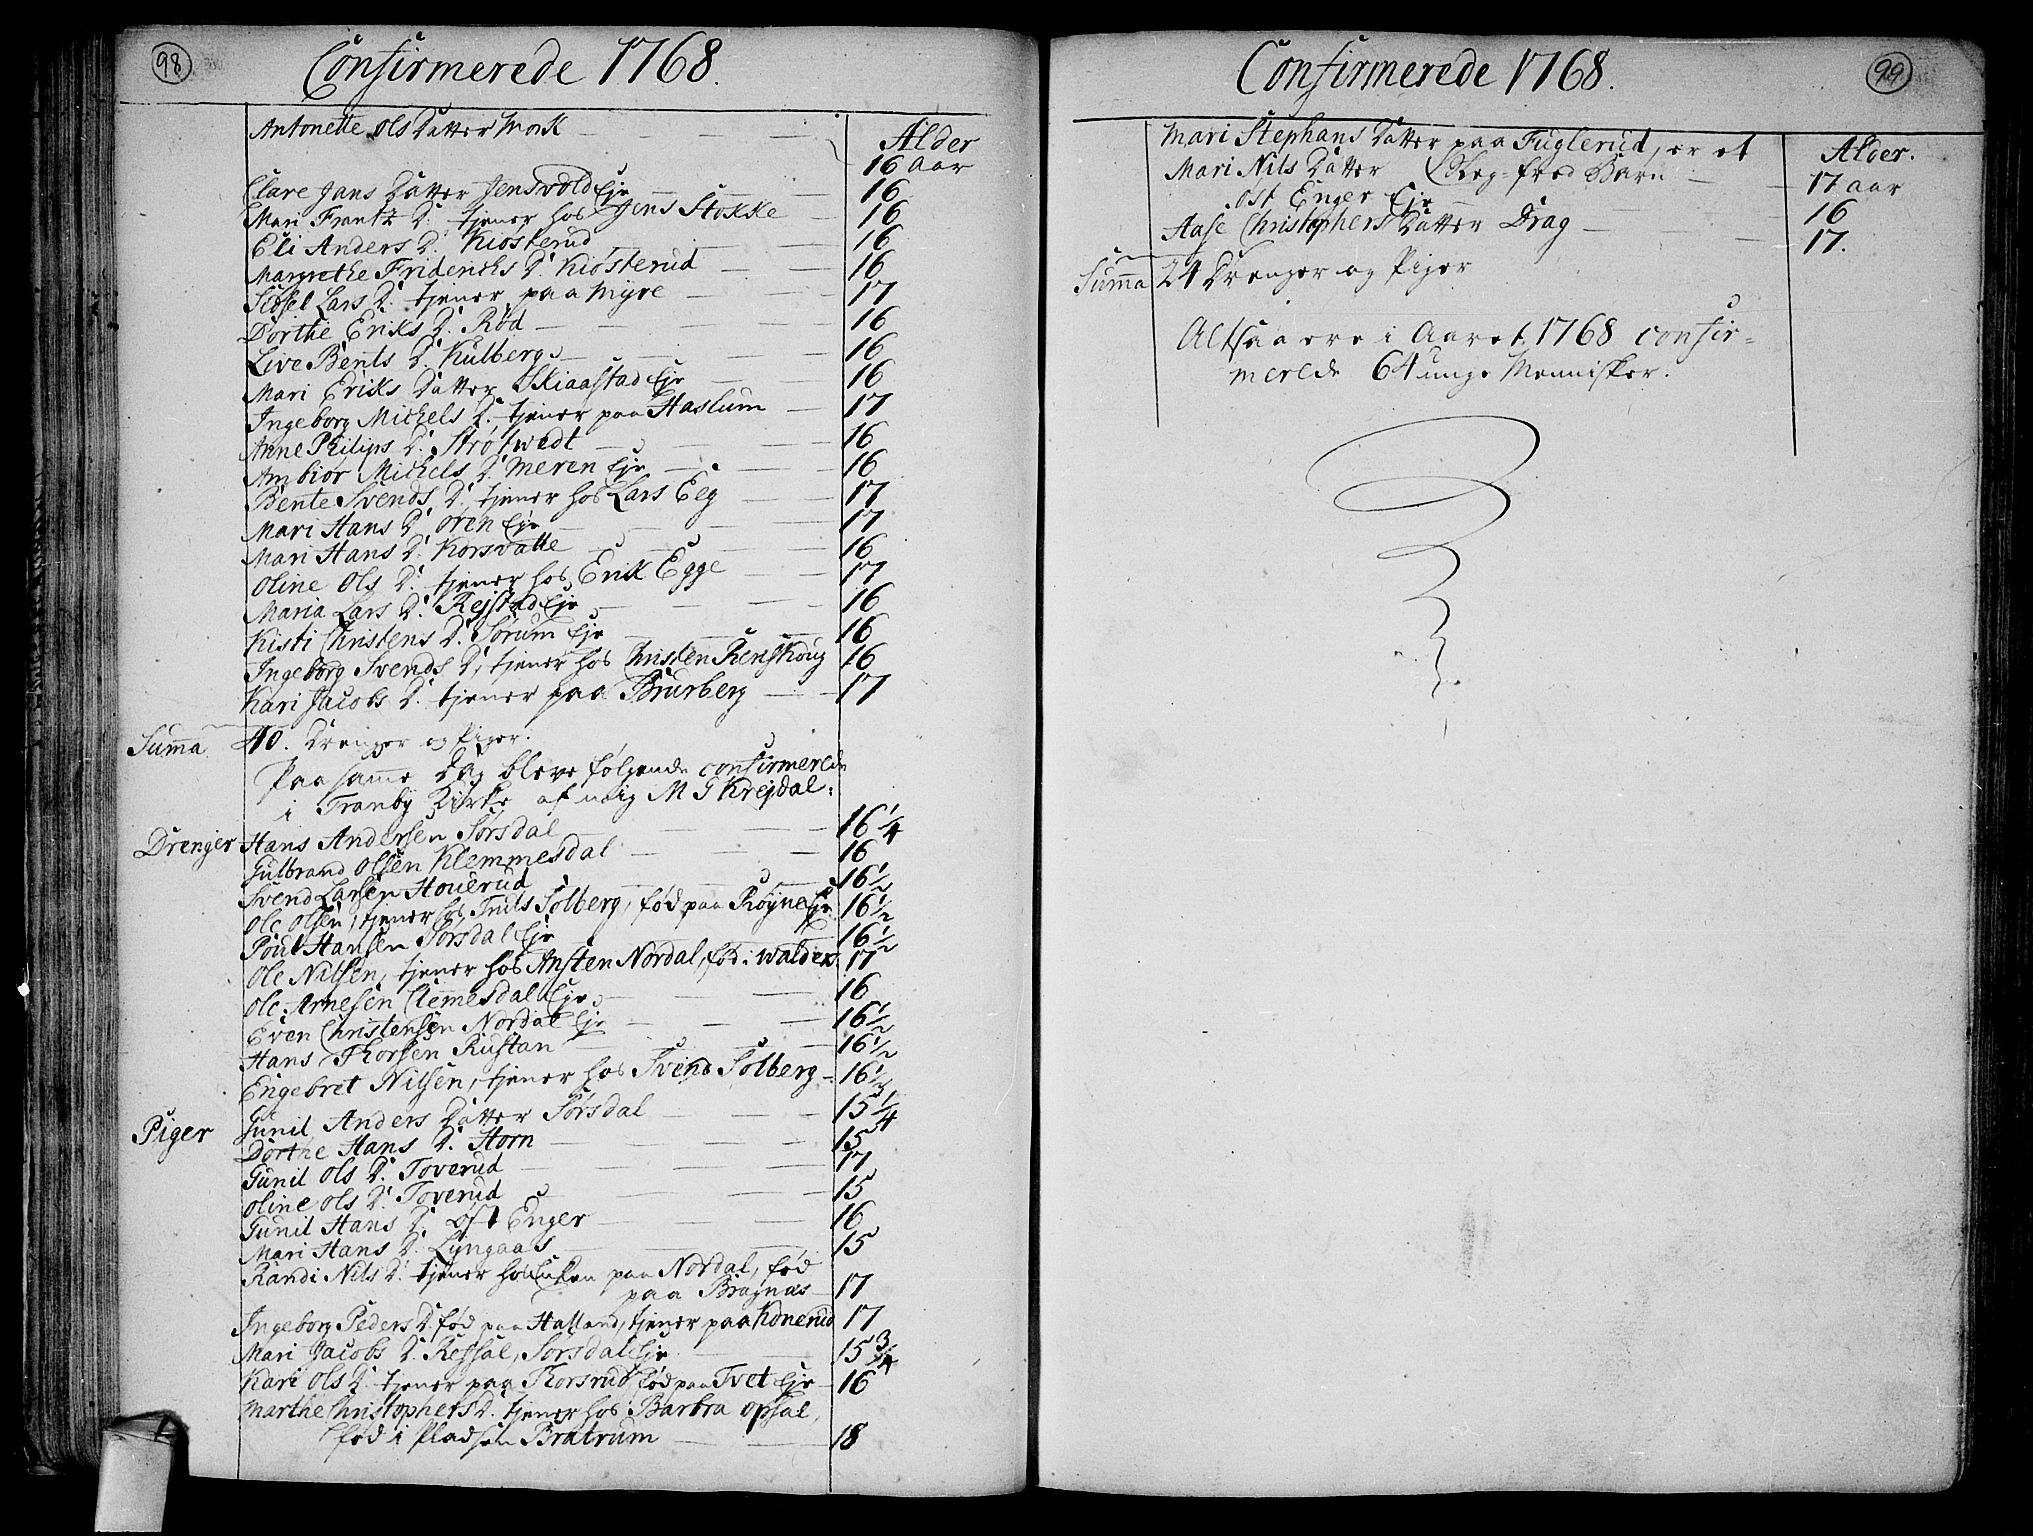 98
Confirmerede 1768.
Alder
Antonette Ols Datter Mork 16 Aar
Clare Jans Datter Jensvold Eje 16
Mari Frantz D. tjener hos Jens Stokke 16
Eli Anders D. Kiøsterud 16
Margrethe Friderichs D. Kiøsterud 16
Sidsel Lars D. tjener paa Myre 17
Dorthe Eriks D. Rød 16
Live Bents D. Kulberg 16
Mari Eriks Datter Skiaastad Eje 16
Ingeborg Michels D. tjener paa Haslum 17
Anne Philips D. Strøtwedt 16
Ambior Michels D. Meren Eje 16
Bente Svends D. tjener hos Lars Eeg 17
Mari Hans D. Oren Eje 17
Mari Hans D. Korsvatte 16
Oline Ols D. tjener hos Erik Egge 17
Maria Lars D. Rejstad Eje 16
Kisti Christens D. Sørum Eje 16
Ingeborg Svends D, tjener hos Christen Renskoug 16
Kari Jacobs D. tjener paa Brurberg 17
Summa 40. Drenger og Piger.
Paa samme Dag bleve følgende confirmerede
i Tranby Kirke af mig M G Krejdal:
Drenger Hans Andersen Sørsdal 16 1/4
Gulbrand Olsen Klemmesdal 16
Svend Larsen Houerud 16 1/2
Ole Olsen, tjener hos Truls Solberg, fød paa Røyne Eje 16 1/2
Poul Hansen Sørsdal Eje 16 1/2
Ole Nilsen, tjener hos Ansten Nordal, fød i Walders 17
Ole Arnesen Clemesdal Eje 16
Even Christensen Nordal Eje 16 1/2
Hans Thorsen Rustan 16 1/2
Engebret Nilsen, tjener hos Svend Solberg 16 1/2
Piger Gunil Anders Datter Sørsdal 15 1/4
Dorthe Hans D. Horn 15
Gunil Ols D. Toverud 17
Oline Ols D. Toverud 15
Gunil Hans D. Øst Enger 16
Mari Hans D. Lyngaas 15
Randi Nils D. tjener hos paa Nordal, fød
paa Bragnæs 17
Ingeborg Peders D. fød paa Halland, tjener paa Konerud 17
Mari Jacobs D. Ressal, Sørsdal Eje 15 3/4
Kari Ols D. tjener paa Thorsrud fød paa Tvet Eje 16
Marthe Christophers D. tjener hos Barbra Opsal,
fød i Pladsen Bratrum 18
99
Confirmerede 1768.
Alder.
Mari Stephans Datter paa Fuglerud, er et
Barn 17 Aar
Mari Nils Datter
Øst Enger Eje 16
Aase Christophers Datter Drag 17.
Summa 24 Drenger og Piger
Altsaa ere i Aaret 1768 confir=
merede 64 unge Mennisker.